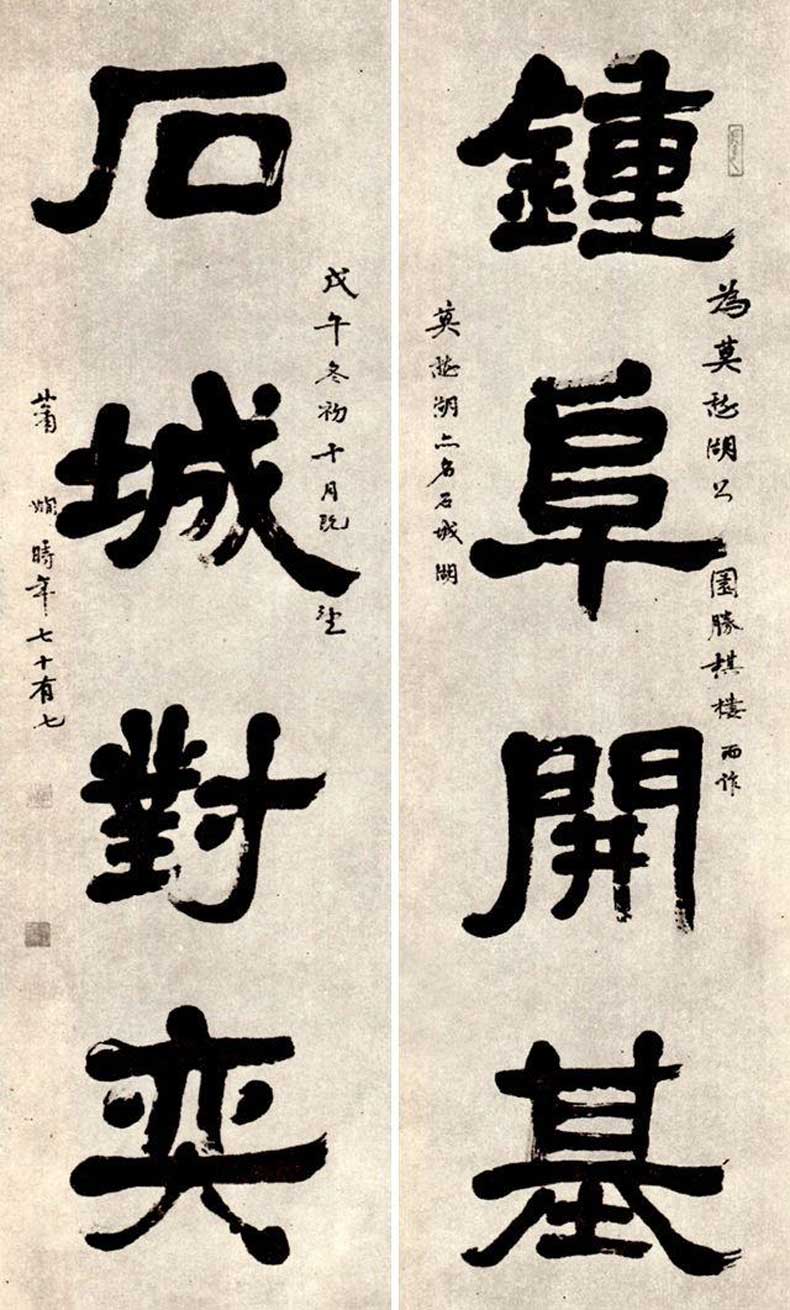 鍾阜開基
為莫愁湖公園勝棋樓而作
莫愁湖亦名石城湖
石城對奕
戊午冬初十月既望
蕭嫻時年七十有七